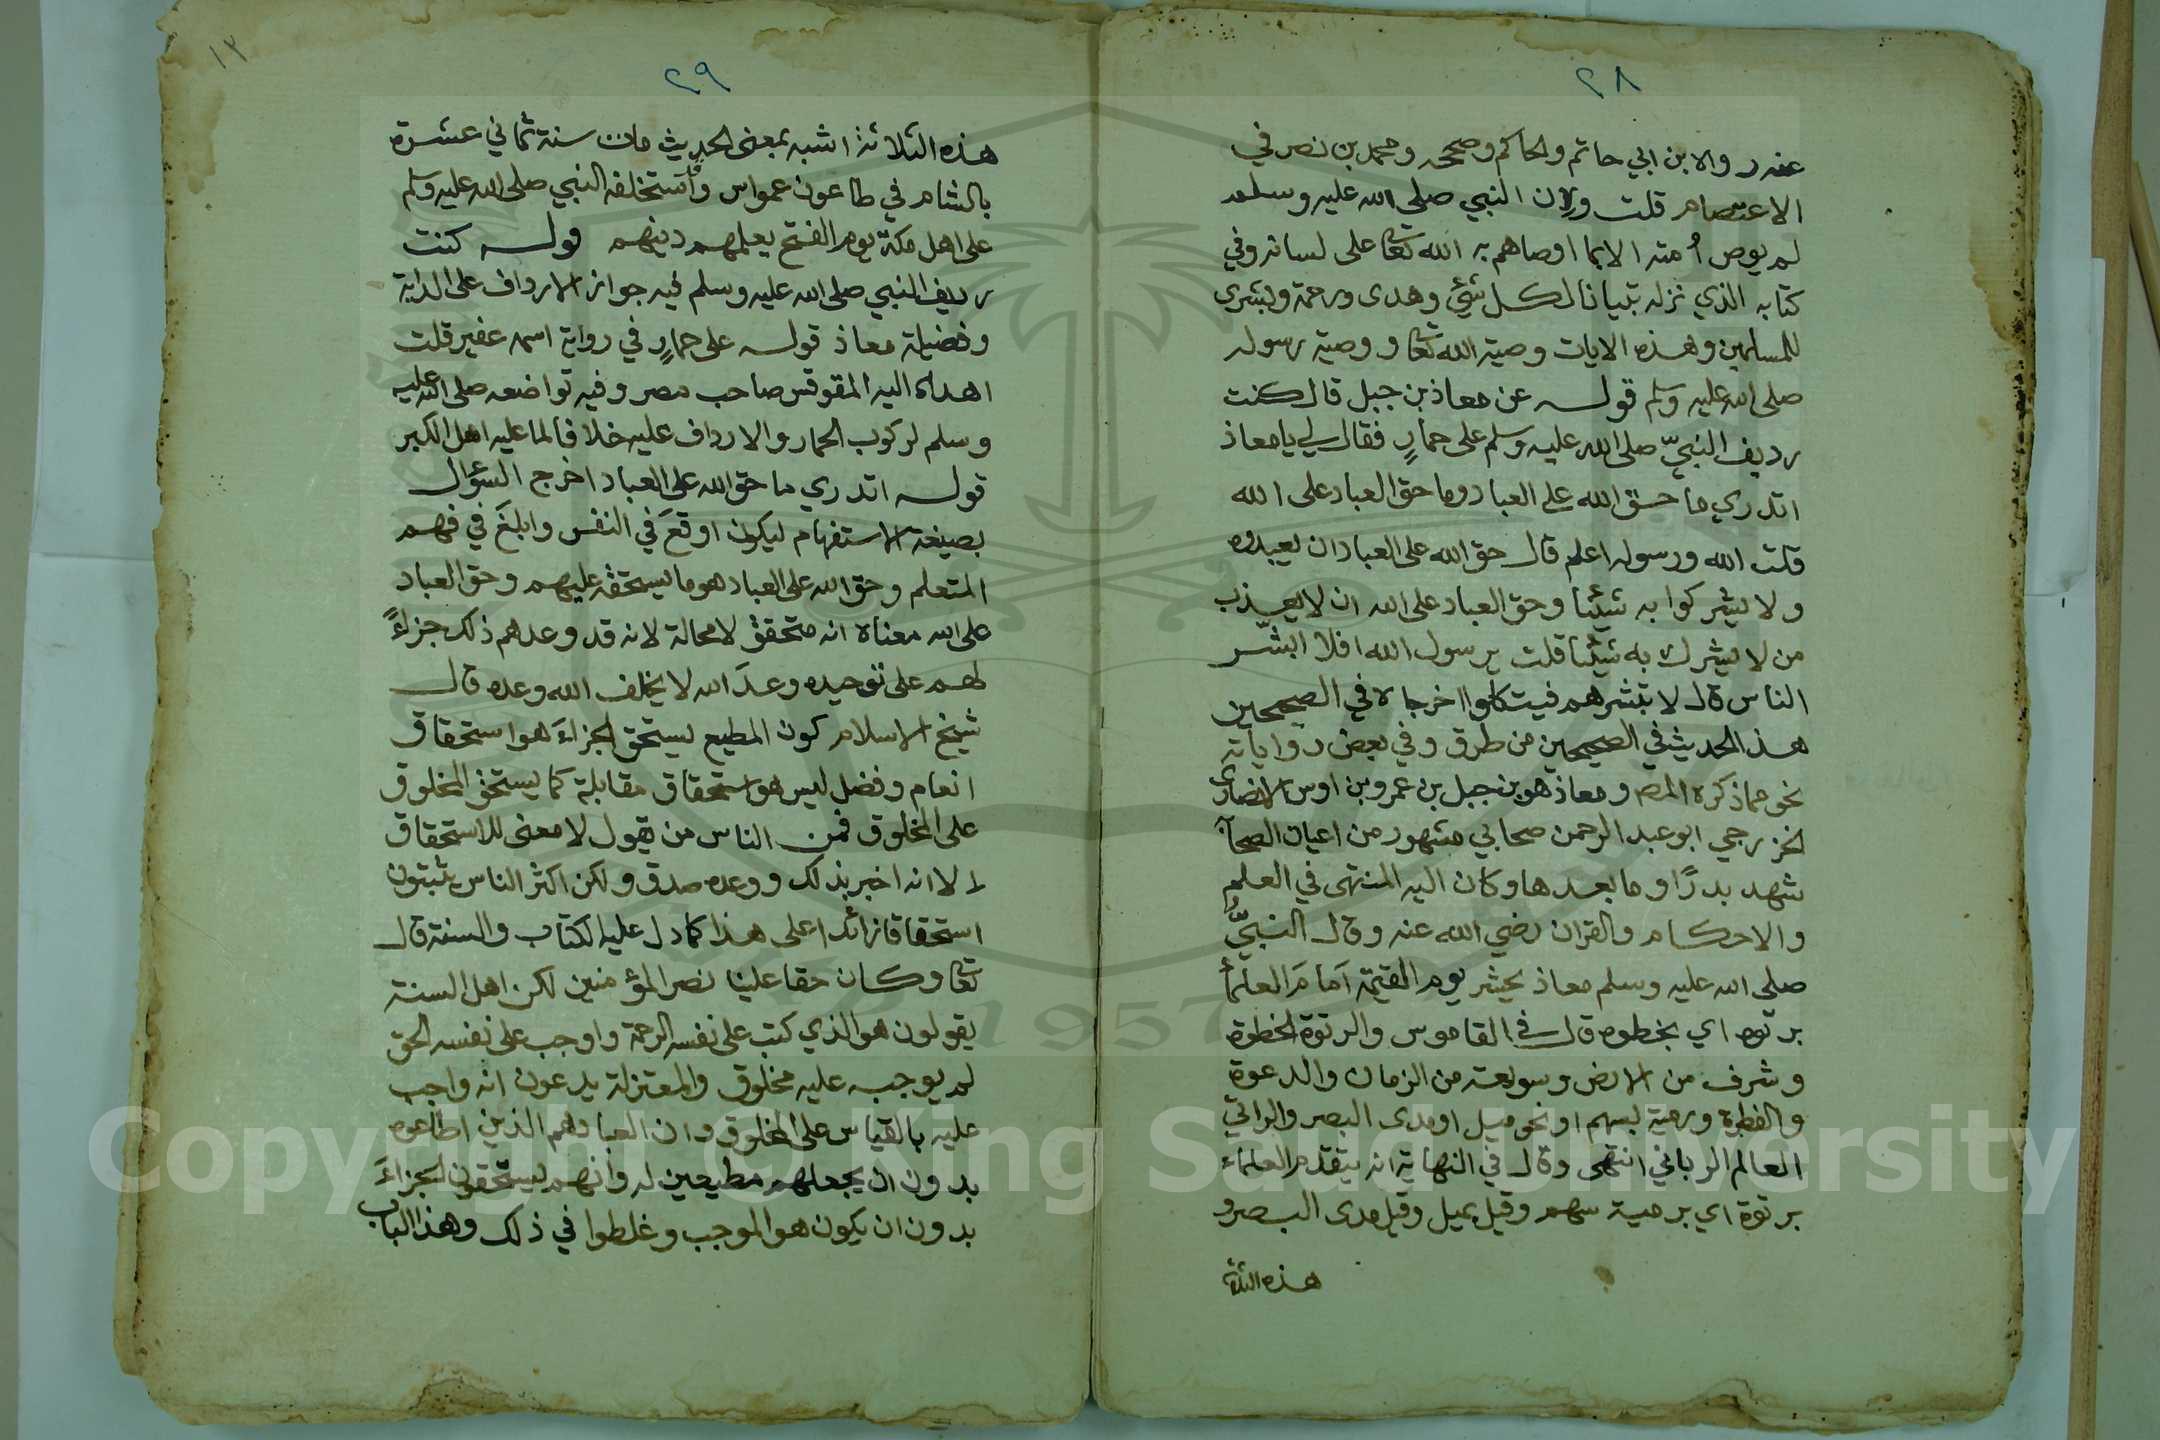 ٢٨
عنه رواه ابن ابي حاتم والحاكم وصححه ومحمد بن نصر في
الاعتصام قلت ولان النبي صلى الله عليه وسلم
لم يوص أمته الا بما اوصاهم به الله تعا على لسانه وفي
كتابه الذي نزله تبيانا لكل شيئ وهدى ورحمة وبشرى
للمسلمين وهذه الايات وصية الله تعا ووصية رسوله
صلى الله عليه وسلم قوله عن معاذ بن جبل قال كنت
رديف النبيّ صلى الله عليه وسلم على حمارٍ فقال لي يا معاذ
اتدري ما حق الله على العباد وما حق العباد على الله
قلت الله ورسوله اعلم قال حق الله على العباد ان يعبدوه
ولا يشركوا به شيئا وحق العباد على الله ان لا يعذب
من لا يشرك به شيئا قلت يرسول الله افلا ابشّر
الناس قال لا تبشرهم فيتكلوا اخرجاه في الصحيحين
هذا الحديث في الصحيحين من طرق وفي بعض رواياته
نحو مما ذكره المص ومعاذ هو بن جبل بن عمرو بن اوس الانصاري
الخزرجي ابو عبد الرحمن صحابي مشهور من اعيان الصحا
شهد بدرًا وما بعدها وكان اليه المنتهى في العلم
والاحكام والقران رضي الله عنه وقال النبيُّ
صلى الله عليه وسلم معاذ يحشر يوم القيمة اَمامَ العلمأ
برتوه اي بخطوه قال في القاموس والرتوة الخطوة
وشرف من الارض وسويعة من الزمان والدعوة
والفطرة ورمية بسهم او نحو ميل او مدى البصر والراتي
العالم الرباني انتهى وقال في النهاية انه يتقدم العلماء
برتوة اي برمية سهم وقيل بميل وقيل مدى البصر و
هذه الثلاثة
١٣
٢٩
هذه الثلاثة اشبه بمعنى الحديث مات سنة ثماني عشرة
بالشام في طاعون عمواس وقد استخلفه النبي صلى الله عليه وسلم
على اهل مكة يوم الفتح يعلمهم دينهم قوله كنت
رديف النبي صلى الله عليه وسلم فيه جواز الارداف على الدابة
وفضيلة معاذ قوله على حمارٍ في رواية اسمه عفير قلت
اهداه اليه المقوقس صاحب مصر وفيه تواضعه صلى الله عليه
وسلم لركوب الحمار والارداف عليه خلافا لما عليه اهل الكبر
قوله اتدري ما حق الله على العباد اخرج السؤال
بصيغة الاستفهام ليكون اوقعَ في النفس وابلغَ في فهم
المتعلم وحق الله على العباد هو ما يستحقه عليهم وحق العباد
على الله معناه انه متحقق لا محالة لانه قد وعدهم ذلك جزاءً
لهم على توحيده وعدَ الله لا يخلف الله وعده قال
شيخ الاسلام كون المطيع يستحق الجزاءَ هو استحقاق
انعام وفضل ليس هو استحقاق مقابلة كما يستحق المخلوق
على المخلوق فمن الناس من يقول لا معنى للاستحقاق
الا انه اخبر بذلك ووعده صدق ولكن اكثر الناس يثبتون
استحقاقا زائدا على هذا كما دل عليه الكتاب والسنة قال
تعا وكان حقا علينا نصر المؤمنين لكن اهل السنة
يقولون هو الذي كتب على نفسه الرحمة واوجب على نفسه الحق
لم يوجبه عليه مخلوق والمعتزلة يدعون انه واجب
عليه بالقياس على المخلوق وان العباد هم الذين اطاعوه
بدون ان يجعلهم مطيعين له وانهم يستحقون الجزاءَ
بدون ان يكون هو الموجب وغلطوا في ذلك وهذا الباب
1957
Copyright © King Saud University